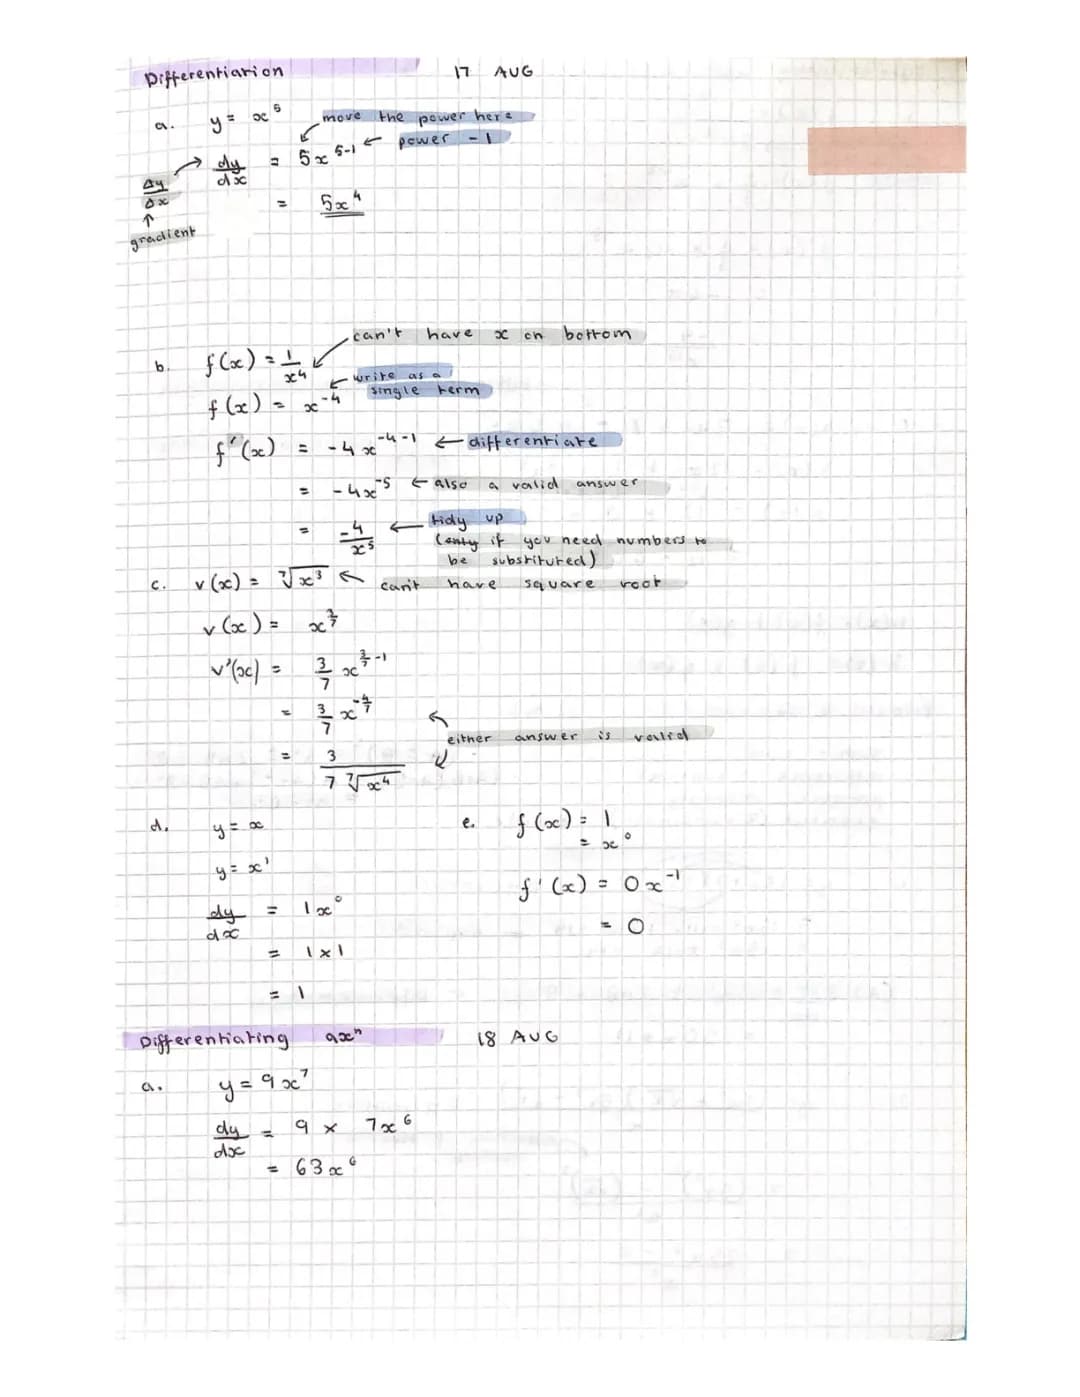 Differentiation 17 AUG
a. y = x⁵
move the power here
dy/dx = 5x⁵⁻¹ ← power - 1
Δy/Δx
= 5x⁴
↑
gradient
can't have x on bottom
b. f(x) = 1/x⁴
write as a
f(x) = x⁻⁴ single term
f'(x) = -4x⁻⁴⁻¹ ← differentiate
= -4x⁻⁵ ← also a valid answer
= -4/x⁵ ← tidy up
(only if you need numbers to
be substituted)
c. v(x) = ⁷√x³ ← can't have square root
v(x) = x^(3/7)
v'(x) = 3/7 x^(3/7 - 1)
= 3/7 x^(-4/7)
either answer is valid
= 3/(7 ⁷√x⁴)
d. y = x
y = x¹
dy/dx = 1x⁰
= 1 × 1
= 1
e. f(x) = 1
= x⁰
f'(x) = 0x⁻¹
= 0
Differentiating axⁿ 18 AUG
a. y = 9x⁷
dy/dx = 9 × 7x⁶
= 63x⁶